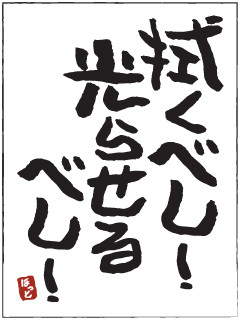 拭くべし!
光らせる
べし!
ほっと